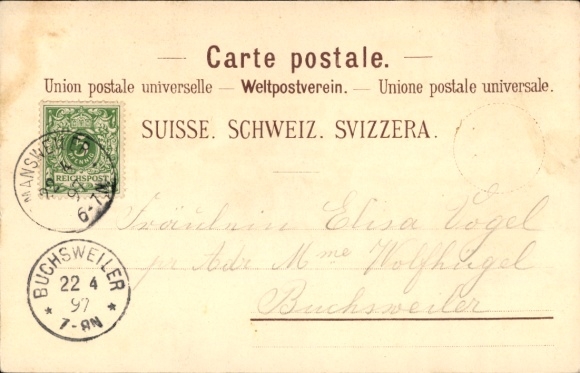 Carte postale.
Union postale universelle — Weltpostverein. — Unione postale universale.
SUISSE. SCHWEIZ. SVIZZERA.
5
PFENNIG
REICHSPOST
22
6-7N
BUCHSWEILER
22 4
97
* 7-8N *
Fräulein Elisa Vogel
pr Adr Mme Wolfhügel
Buchsweiler